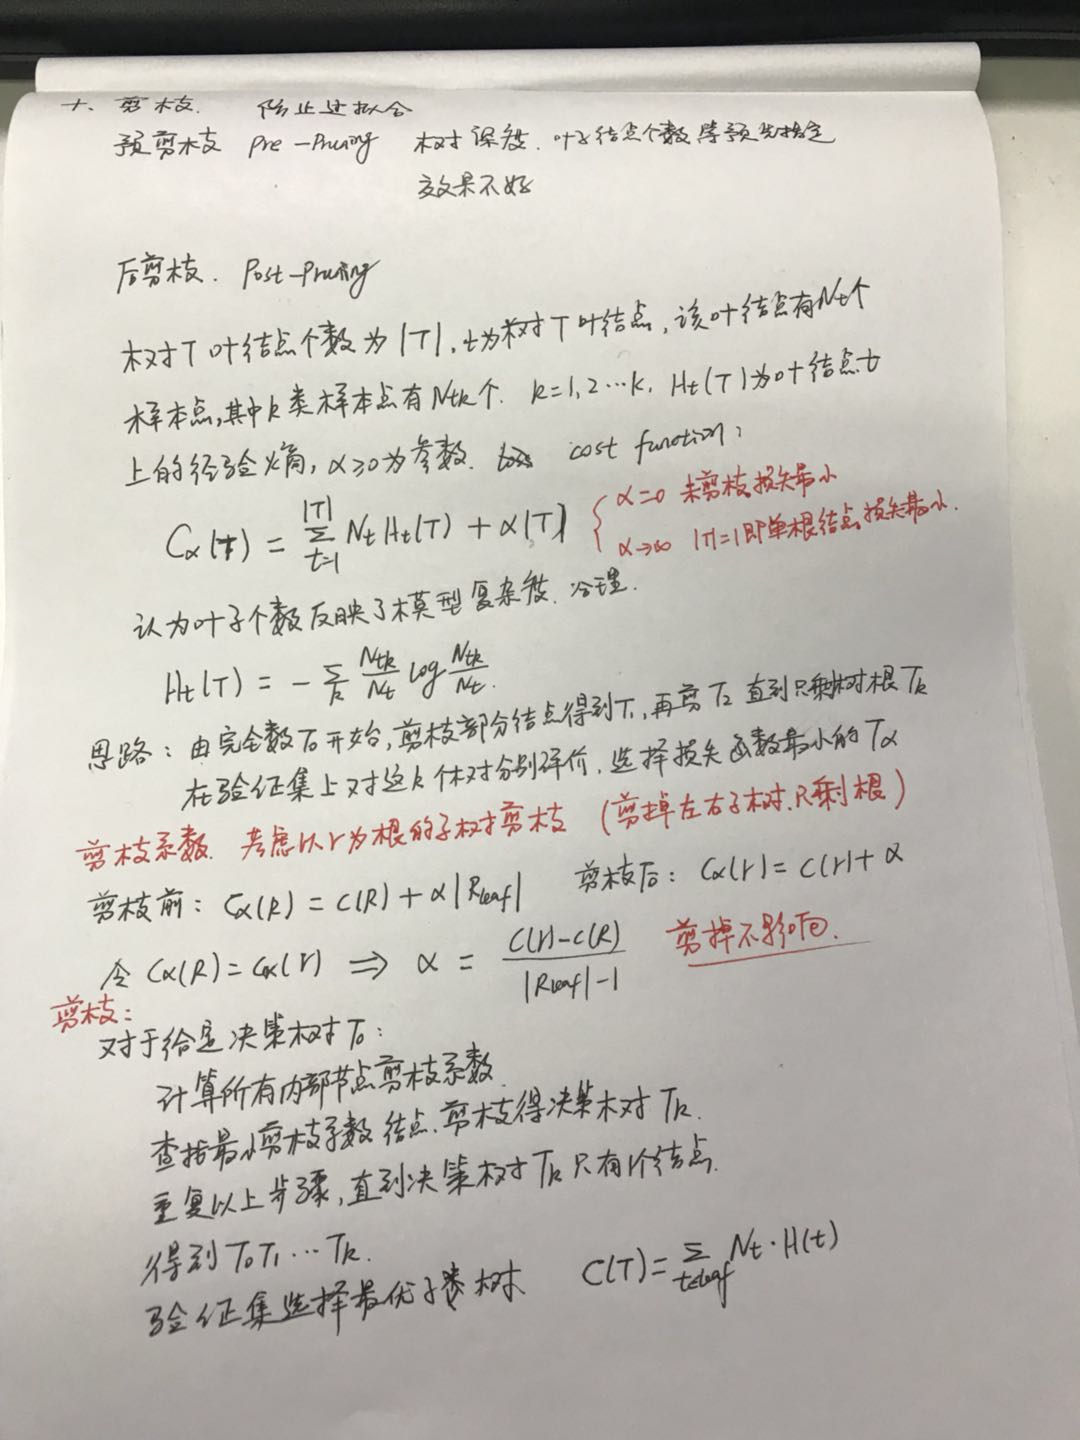 十、剪枝. 防止过拟合
预剪枝 Pre-Pruning 树深度.叶子结点个数等预先指定
效果不好
后剪枝. Post-Pruning
树T叶结点个数为|T|,t为树T叶结点,该叶结点有Nt个
样本点,其中k类样本点有Ntk个. k=1,2…k, Ht(T)为叶结点t
上的经验熵, α≥0为参数. cost function:
Cα(T) = Σ_{t=1}^{|T|} Nt Ht(T) + α|T| { α=0 未剪枝损失最小
α→∞ |T|=1即单根结点损失最小.
认为叶子个数反映了模型复杂度.合理.
Ht(T) = -Σ_k Ntk/Nt log Ntk/Nt.
思路: 由完全数T0开始,剪枝部分结点得到T1,再剪T2直到只剩树根Tk
在验证集上对这k个树分别评价.选择损失函数最小的Tα
剪枝系数. 考虑以r为根的子树剪枝 (剪掉左右子树.只剩根)
剪枝前: Cα(R) = C(R) + α|Rleaf| 剪枝后: Cα(r) = C(r) + α
令 Cα(R) = Cα(r) ⇒ α = (C(r)-C(R))/(|Rleaf|-1) 剪掉不影响.
剪枝:
对于给定决策树T0:
计算所有内部节点剪枝系数.
查找最小剪枝系数结点.剪枝得决策树Tk.
重复以上步骤,直到决策树Tk只有1个结点.
得到T0T1…Tk.
验证集选择最优子树 C(T) = Σ_{t∈leaf} Nt·H(t)